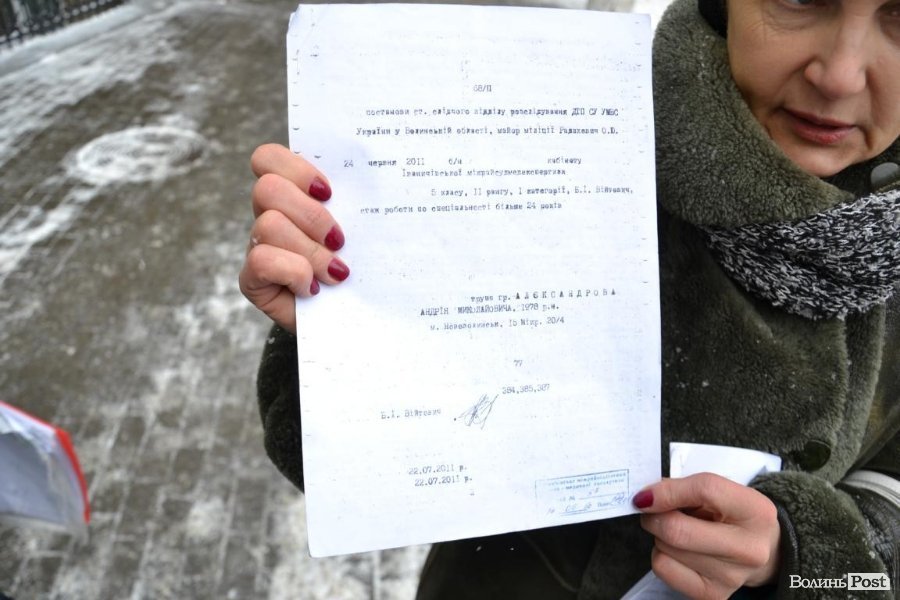 68/П
постанови ст. слідчого відділу розслідування ДТП СУ УМВС
України у Волинській області, майор міліції Радкевич О.О.
24 червня 2011 б/н кабінету
Іваничівської міжрайсудмедекспертиза
5 класу, ІІ рангу, І категорії, Б.І. Війтович,
стаж роботи по спеціальності більше 24 років
трупа гр. АЛЄКСАНДРОВА
АНДРІЯ МИКОЛАЙОВИЧА, 1978 р.н.
м. Нововолинськ, 15 Мікр. 20/4
77
384,385,387
Б.І. Війтович
22.07.2011 р.
22.07.2011 р.
ВолиньPost